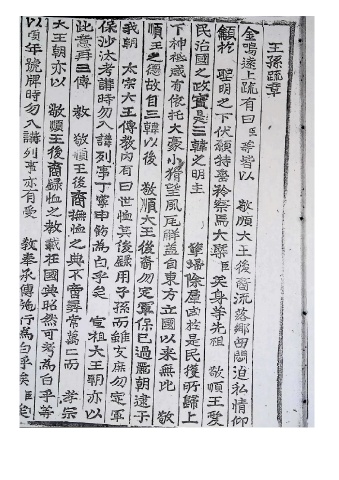 王孫疏章
金鳴遠上疏有曰臣等皆以 敬順大王後裔流落鄉曲悶迫私情仰
籲於 聖明之下伏願特垂矜察焉大槩臣矣身等先祖 敬順王愛
民治國之政實是三韓之明主 掃除塵 於是民獲所歸上
下神祗咸有依托大豪小猾望風瓦解蓋自東方立國以來無比 敬
順王之德故自三韓以後 敬順大王後裔勿定軍保已過麗朝逮于
我朝 太宗大王傳教內有曰世恤其後錄用子孫而雖支庶勿定軍
保沙汰考講時勿 講列事丁寧申飭為白乎矣 宣祖大王朝亦以
此意再三傳 教 敬順王後裔撫恤之典不啻尋常萬二而 孝宗
大王朝亦以 敬順王後裔錄恤之教載在國典昭然可考為白乎等
以頃年號牌時勿入講列事亦有受 教奉承傳施行為白乎矣 臣矣